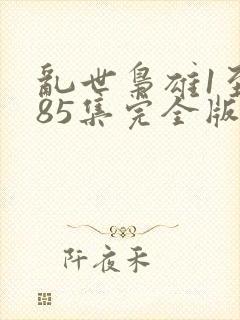 亂世梟雄1至
85集完全版
阡夜釆